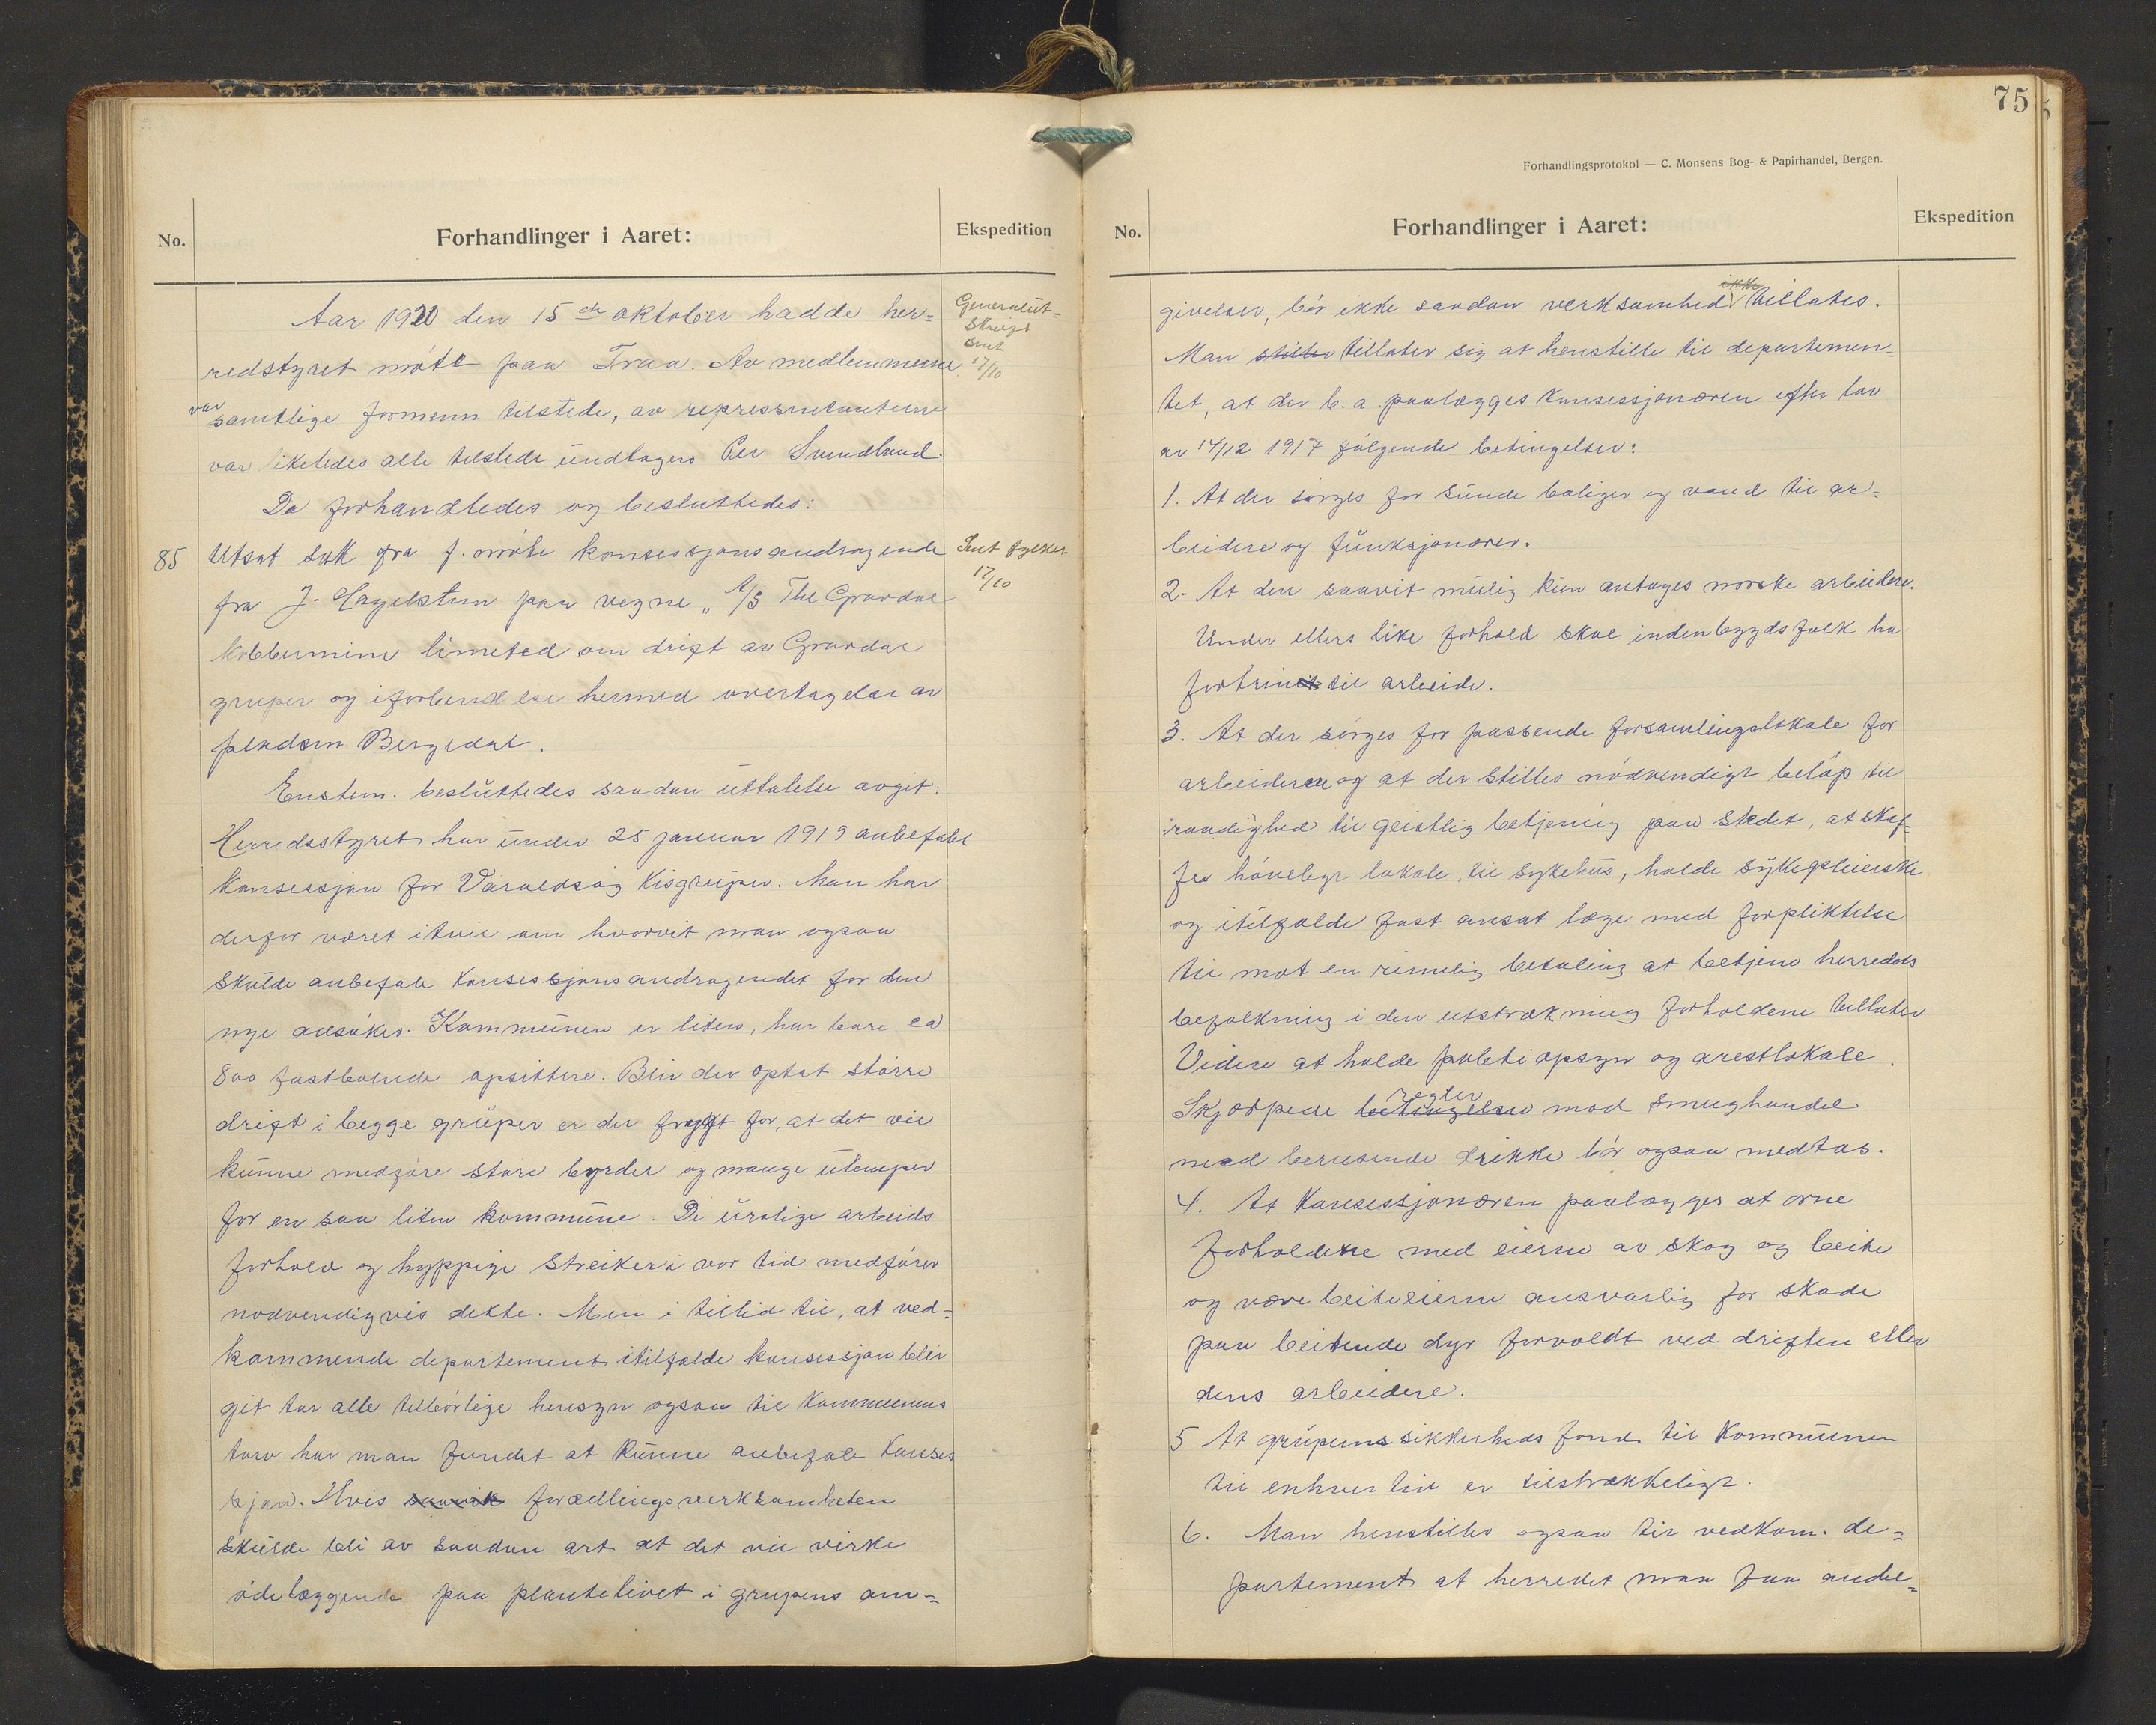 No.
Forhandlinger i Aaret:
Ekspedition
Aar 1920 den 15de oktober hadde her=
redstyret møte paa Traa. Av medlemmerne
var samtlige formenn tilstede, av representanterne
var likeledes alle tilstede undtagen Per Sundlund.
Da forhandledes og besluttedes:
Generalut=
skrift
sent
17/10
85 Utsat sak fra f. møte konsessjonsandragende
fra J. Hagelsten paa vegne „A/S The Gravdal
kobbermine limeted om drift av Gravdal
gruper og iforbindelse hermed overtagelse av
Bergedal.
Sent fylket
17/10
Enstem. besluttedes saadan uttalelse avgit:
Herredsstyret har under 25 januar 1919 anbefalt
konsessjon for Varaldsøy Kisgruper. Man har
derfor været itvil om hvorvit man ogsaa
skulde anbefale konsessjonsandragendet for den
nye ansøker. Kommunen er liten, har bare ca
800 fastboende opsittere. Blir der optat større
drift i begge gruper er der frygt for, at det vil
kunne medføre store byrder og mange ulemper
for en saa liten kommune. De urolige arbeids
forhold og hyppige streiker i vor tid medfører
nodvendigvis dette. Men i tillid til, at ved=
kommende departement itilfælde konsessjon blir
git tar alle tilbørlige hensyn ogsaa til kommunens
tarv har man fundet at kunne anbefale konses
sjon. Hvis saavit forædlingsverksomheten
skulde bli av saadan art at det vil virke
ødelæggende paa plantelivet i grupens om=
75
Forhandlingsprotokol — C. Monsens Bog- & Papirhandel, Bergen.
No.
Forhandlinger i Aaret:
Ekspedition
givelser, bør ikke saadan verksomhed ikke tillates.
Man stiller tillater sig at henstille til departemen=
tet, at der b.a. paalægges konsessjonæren efter lov
av 14/12 1917 følgende betingelser:
1. At der sørges for sunde boliger og vand til ar=
beidere og funksjonærer.
2. At der saavit mulig kun antages norske arbeidere.
Under ellers like forhold skal indenbygdsfolk ha
fortrinet til arbeide.
3. At der sørges for passende forsamlingslokale for
arbeiderne og at der stilles nødvendigt beløp til
raadighed til geistlig betjening paa stedet, at skaf=
fe høveligt lokale til sykehus, holde sykepleierske
og itilfælde fast ansat læge med forpliktelse
til mot en rimelig betaling at betjene herredets
befolkning i den utstrækning forholdene tillater
Videre at holde politiopsyn og arestlokale.
Skjærpede betingelser regler mod smughandel
med berusende drikke bør ogsaa medtas.
4. At konsessjonæren paalægges at orne
forholdene med eierne av skog og beite
og være beiteeierne ansvarlig for skade
paa beitende dyr forvoldt ved driften eller
dens arbeidere.
5 At grupens sikkerheds fond til kommunen
til enhver tid er tilstrækkeligt.
6. Man henstiller ogsaa til vedkom. de=
partement at herredet maa faa andel=